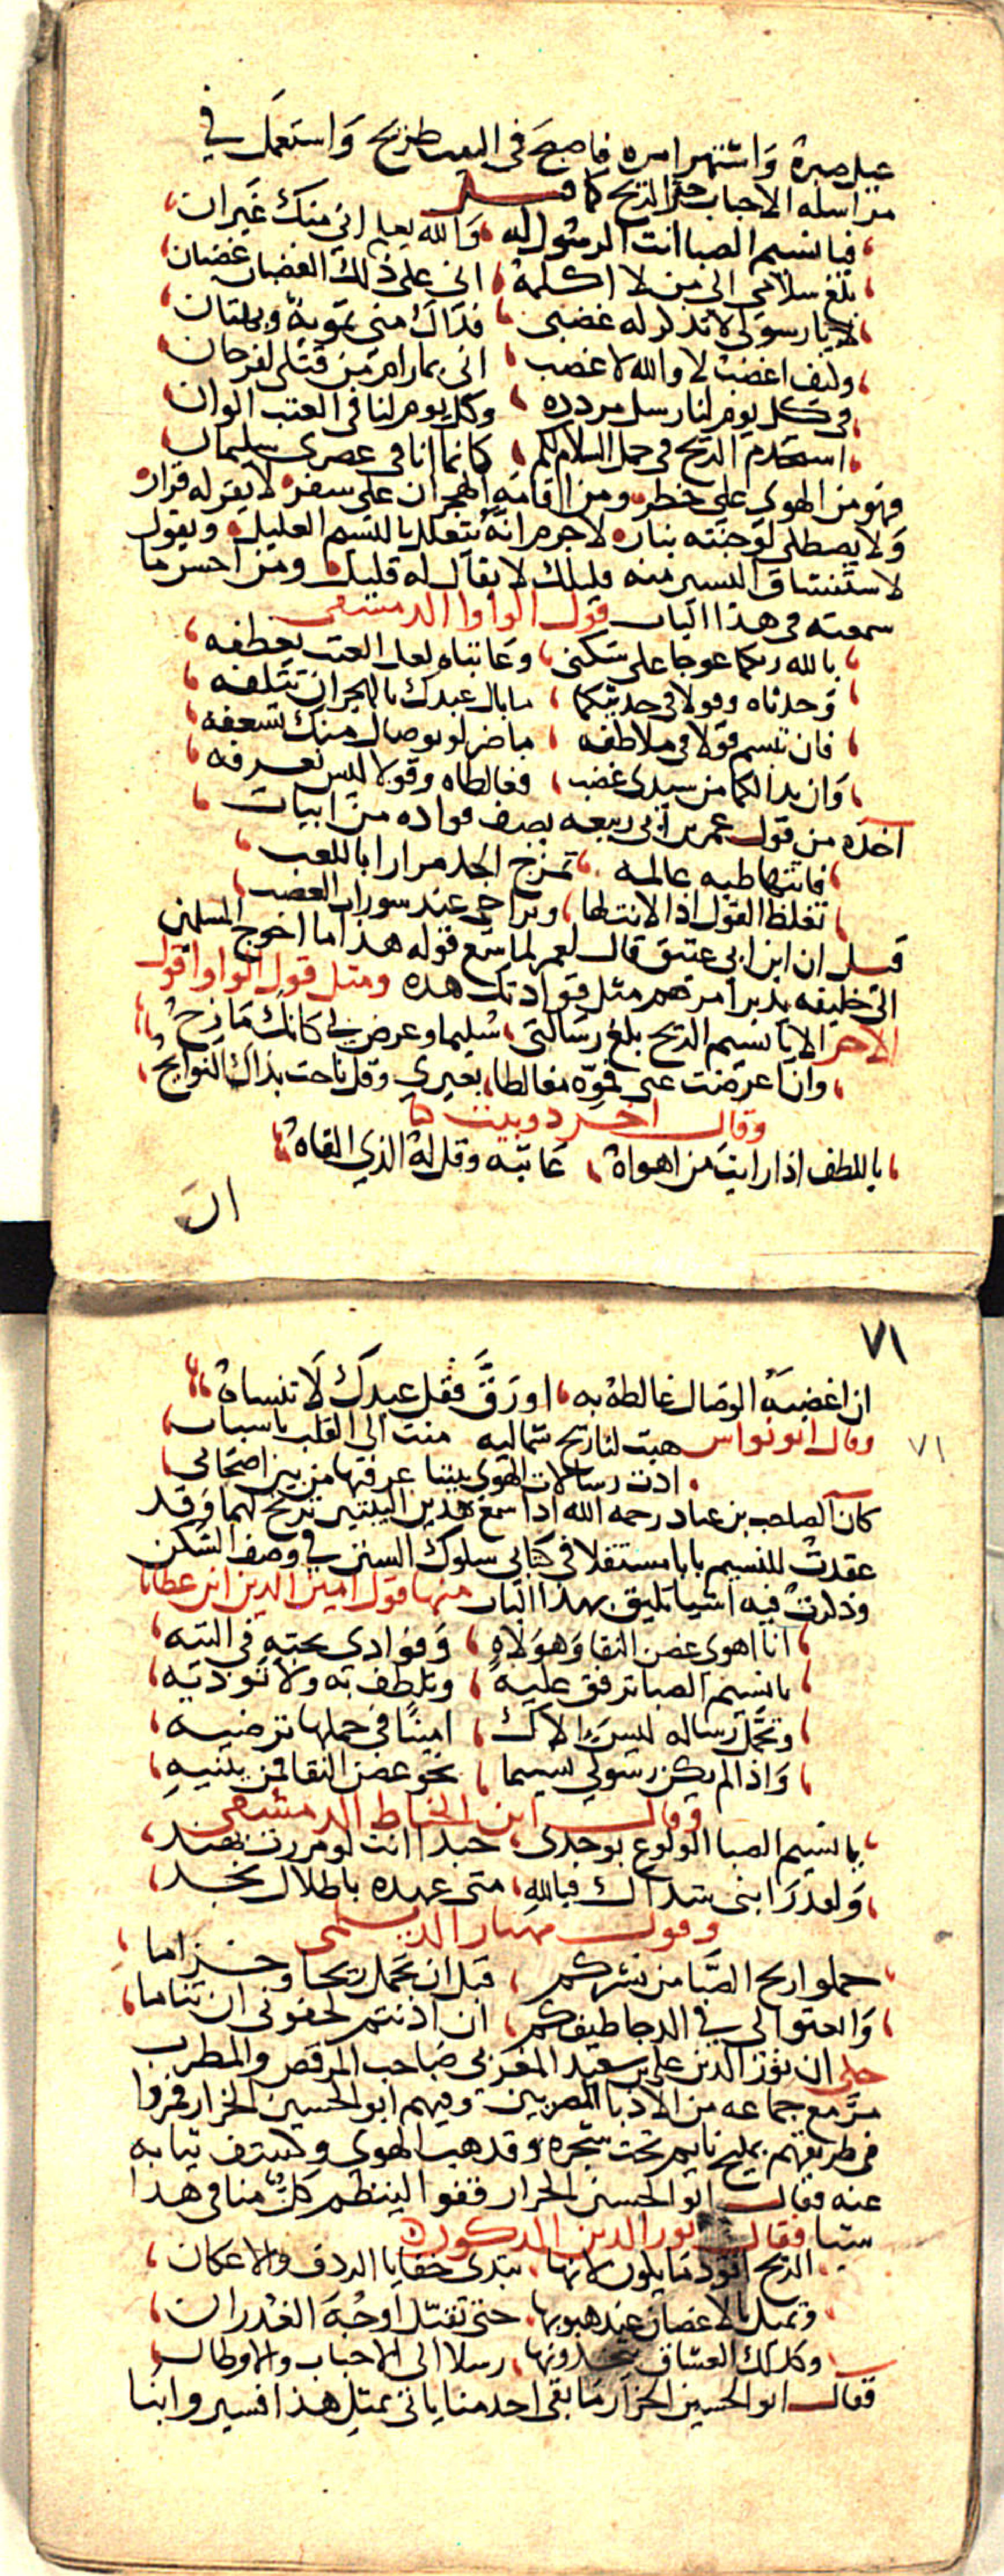 عيل صبره واشتهر امره فاصبح في البيت طريح واستعمل في
مراسله الاحباب حتى الريح كما قيل
فيا نسيم الصبا انت الرسول له والله يعلم اني منك غيران
بلغ سلامي الى من لا اكلمه اني على ذلك الغضبان غضبان
لا يا رسولي لا تذكر له غضبي فذاك مني تمويه وبهتان
وكيف اغضب لا والله لا غضب اني بما رام من قتلي لفرحان
في كل يوم لنا رسل مردده وكل يوم لنا في العتب الوان
استخدم الريح في حمل السلام لكم كانما انا في عصري سليمان
فهو من الهوى على خطر ومن اقامه الهجران على سفر لا يقر له قرار
ولا يصطلى لوجنته بنار لا جرم انه يتعلل بالنسم العليل ويقول
لاستنشاق اليسير منه قليلك لا يقال له قليل ومن احسن ما
سمعته في هذا الباب قول الواوا الدمشقي
بالله ربكما عوجا على سكني وعاتباه لعل العتب يعطفه
وحدثاه وقولا في حديثكما ما بال عبدك بالهجران تتلفه
فان تبسم قولا في ملاطفه ما ضر لو بوصال منك تسعفه
وان بدا لكما من سيدي غضب فغالطاه وقولا ليس نعرفه
اخذه من قول عمر بن ابي ربيعه يصف قواده من ابيات
فاتتها طبه عالمه تمزج الجد مرارا باللعب
تغلظ القول اذا لانت لها وتراخى عند سورات الغضب
قيل ان ابن ابي عتيق قال لعمر لما سمع قوله هذا ما احوج المسلمين
الى خليفه يدبر امرهم مثل قوادتك هذه ومثل قول الواوا قول
الاخر الا يا نسيم الريح بلغ رسالتي سليما وعرض لي كانك مازح
وان اعرضت عني فموه مغالطا بغيري وقل ناحت بذاك النوايح
وقال اخر دوبيت
باللطف اذا رايت من اهواه عاتبه وقل له الذي القاه
ان
٧١
ان اغضبه الوصال غالطه به او رق فقل عبدك لا تنساه
وقال ابو نواس هبت لنا ريح شماليه منت الى القلب باسباب
٧١
ادت رسالات الهوى بيننا عرفتها من بين اصحابي
كان الصاحب بن عباد رحمه الله اذا سمع هذين البيتين ترنح لهما وقد
عقدت للنسيم بابا مستقلا في كتابي سلوك السنن في وصف السكن
وذكرت فيه اشيا تليق بهذا الباب منها قول امين الدين ابن عطايا
انا اهوى غصن النقا وهو لاه وفوادي بحبه في التيه
يا نسيم الصبا ترفق عليه وتلطف به ولا توذيه
وتحمل رساله ليس الاك امينا في حملها ترضيه
واذا لم يكن رسولي نسيما نحو غصن النقا فمن يثنيه
وقال ابن الخياط الدمشقي
يا نسيم الصبا الولوع بوجدي حبذا انت لو مررت بهند
ولقد رابني شذاك فبالله متى عهده باطلال نجد
وقول مهيار الديلمي
حملوا ريح الصبا من نشركم قبل ان تحمل ريحا وخزاما
وابعثوا لي في الدجا طيفكم ان اذنتم لجفوني ان تناما
حكى ان نور الدين علي بن سعيد المغربي صاحب المرقص والمطرب
مر مع جماعه من الادبا المصريين وفيهم ابو الحسين الجزار فمروا
في طريقهم بمليح نايم تحت شجره وقد هب الهوى وكشف ثيابه
عنه فقال ابو الحسين الجزار قفوا لينظم كل منا في هذا
شيا فقال نور الدين المذكور
الريح اقود ما يكون لانها تبدي خفايا الردف والاعكان
وتميل بالاغصان عند هبوبها حتى تقبل اوجه الغدران
وكذلك العشاق يتخذونها رسلا الى الاحباب والاوطان
فقال ابو الحسين الجزار ما بقى احد منا ياتي بمثل هذا فسيروا بنا